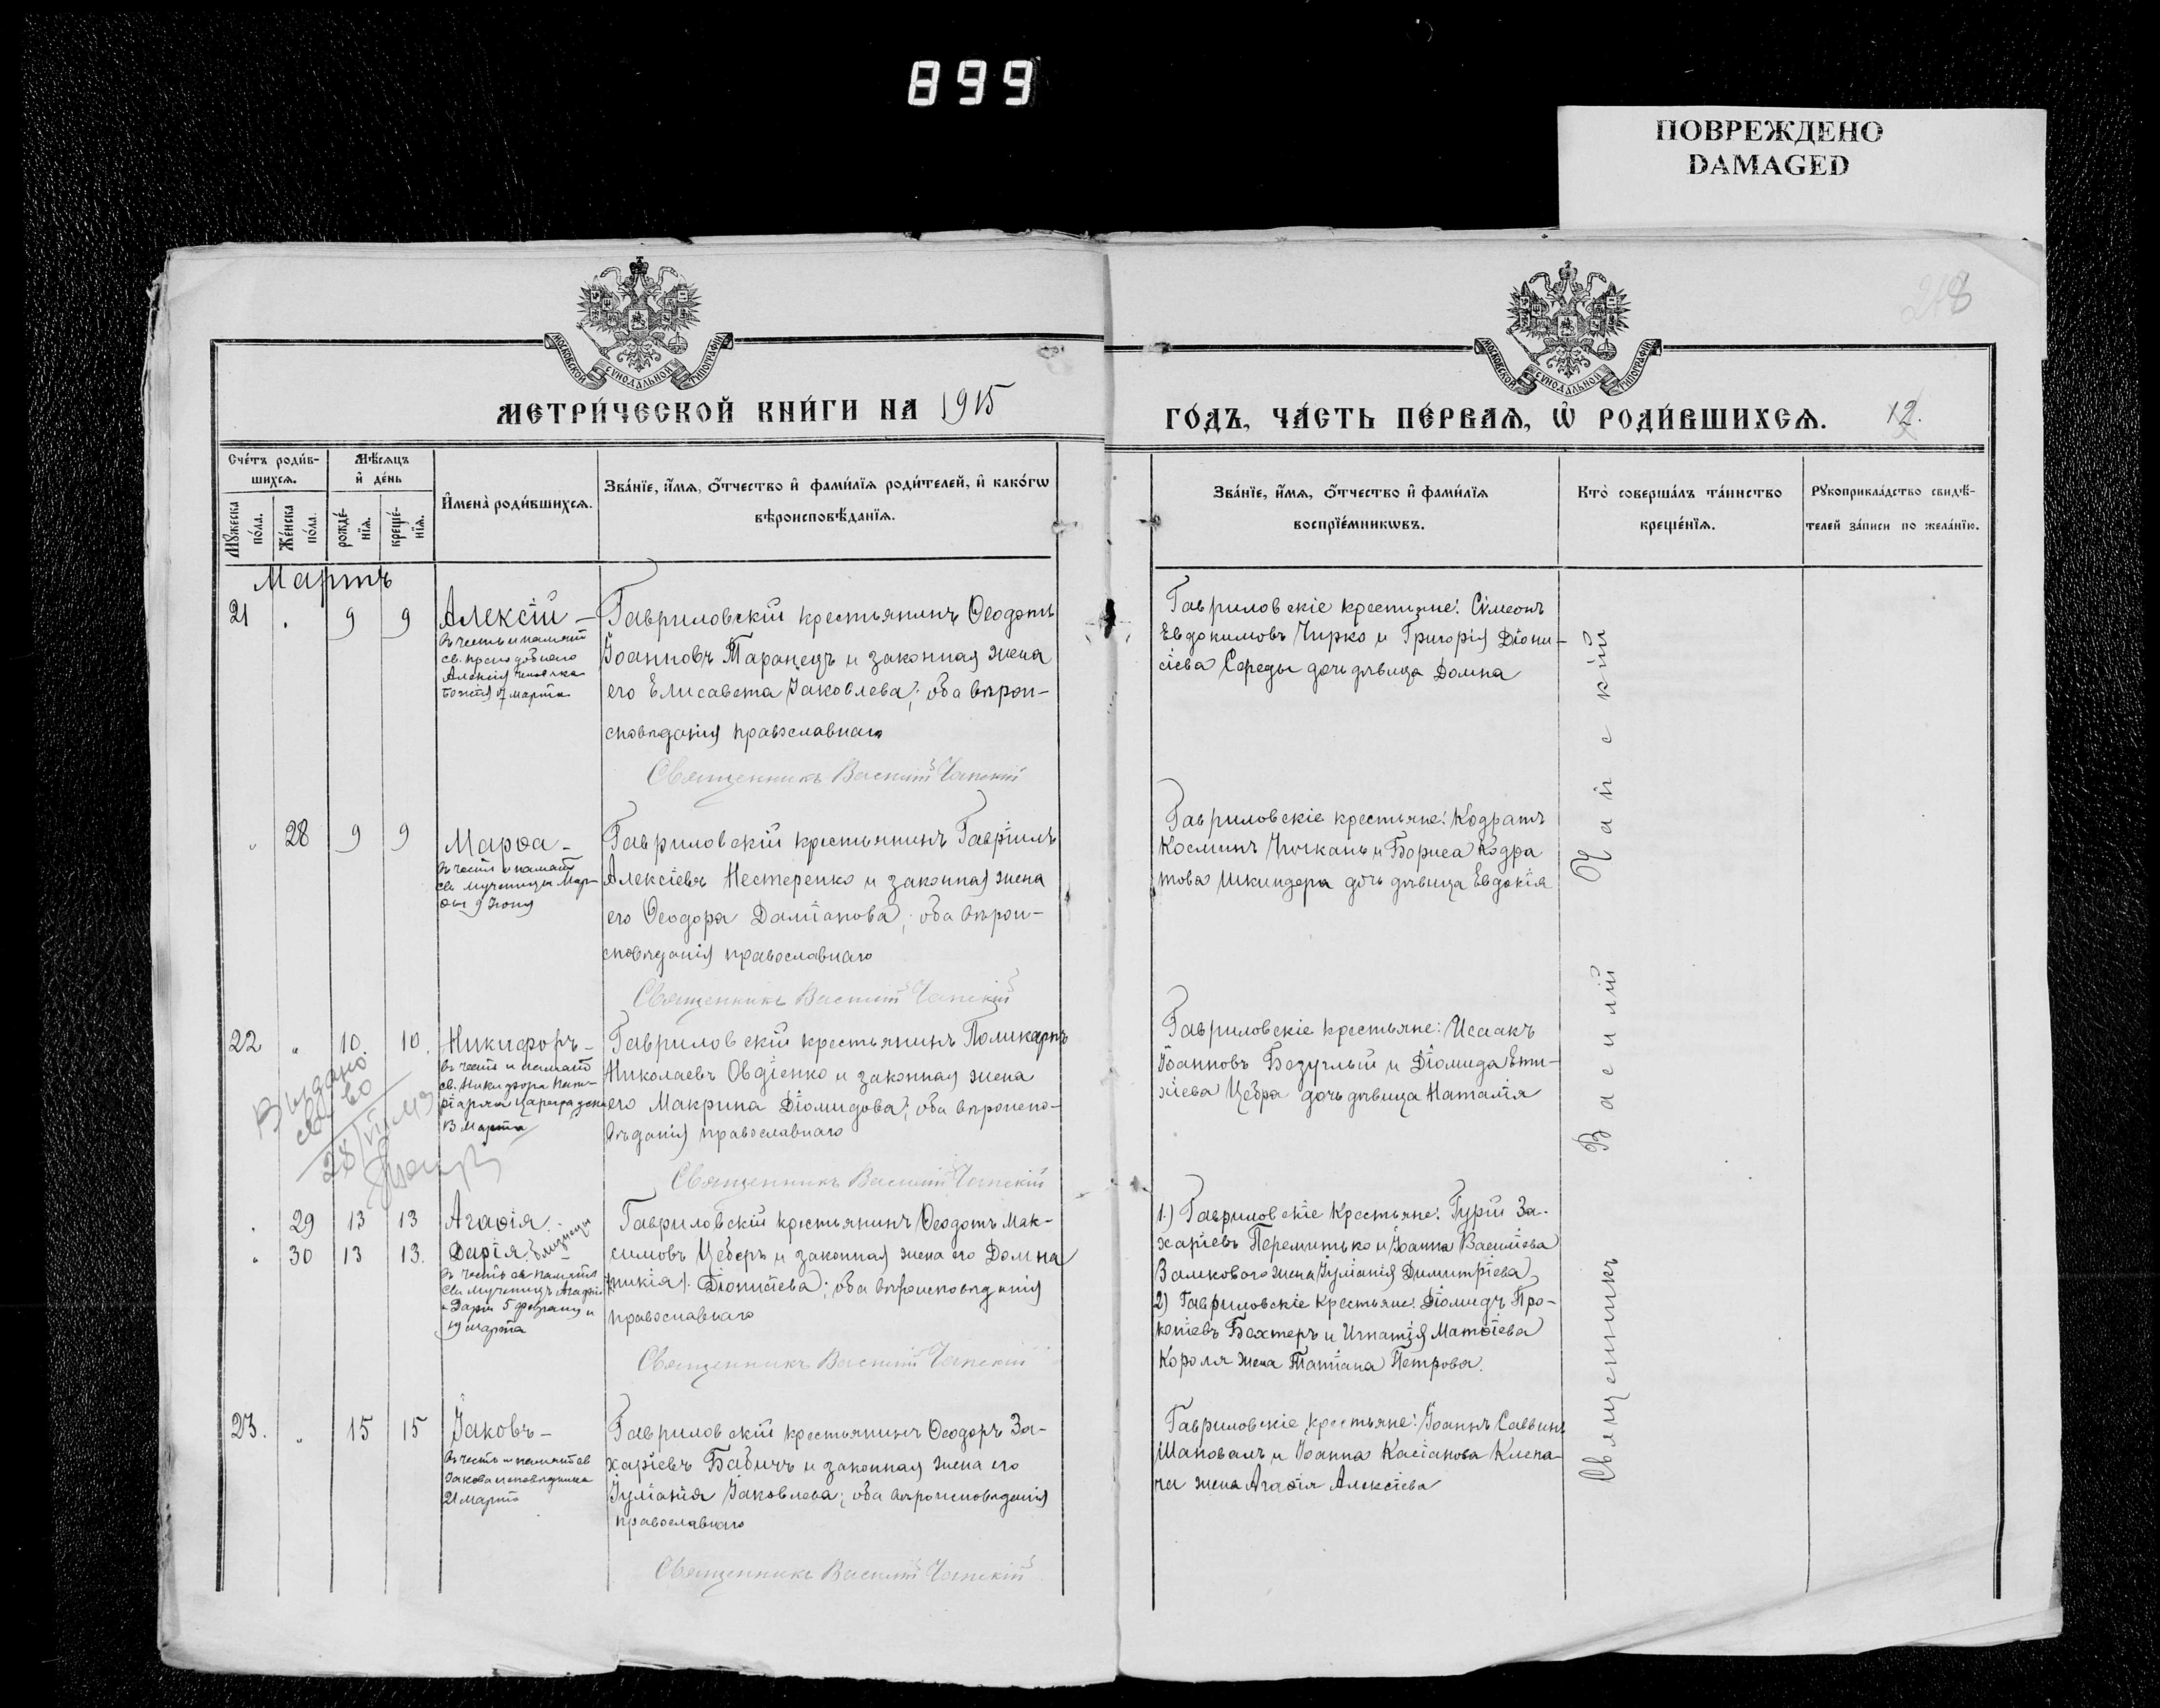 899
ПОВРЕЖДЕНО
DAMAGED
МОСКОВСКОЙ СѴНОДАЛЬНОЙ ТИПОГРАФІИ
МОСКОВСКОЙ СѴНОДАЛЬНОЙ ТИПОГРАФІИ
218
МЕТРИ́ЧЕСКОЙ КНИ́ГИ НА 1915
ГО́ДЪ, ЧА́СТЬ ПЕ́РВАѦ, Ѡ҆ РОДИ́ВШИХСѦ. 12.
Сче́тъ роди́в-
шихсѧ.
Мѣ́сѧцъ
и҆ де́нь
Мꙋ́жеска
по́ла.
Же́нска
по́ла.
рожде́-
нїѧ.
креще́-
нїѧ.
И҆мена̀ роди́вшихсѧ.
Зва́нїе, и҆́мѧ, ѻ҆́тчество и҆ фами́лїѧ роди́телей, и҆ како́гѡ
вѣроисповѣ́данїѧ.
Зва́нїе, и҆́мѧ, ѻ҆́тчество и҆ фами́лїѧ
воспрїе́мникѡвъ.
Кто̀ соверша́лъ та́инство
креще́нїѧ.
Рꙋкоприкла́дство свидѣ́-
телей за́писи по жела́нїю.
Мартъ
21 " 9 9 Алексій –
въ честь и память
св. преподобнаго
Алексія человѣка
Божія 17 марта
Гавриловскій крестьянинъ Ѳеодотъ
Іоанновъ Таранецъ и законная жена
его Елисавета Іаковлева; оба вѣрои-
сповѣданія православнаго
Священникъ Василій Чапскій
Гавриловскіе крестьяне: Сѵмеонъ
Евдокимовъ Чирко и Григорія Діони-
сіева Середы дочь дѣвица Домна
" 28 9 9 Марѳа –
въ честь и память
св. мученицы Мар-
ѳы 9 Іюня
Гавриловскій крестьянинъ Гавріилъ
Алексіевъ Нестеренко и законная жена
его Ѳеодора Даміанова; оба вѣрои-
сповѣданія православнаго
Священникъ Василій Чапскій
Гавриловскіе крестьяне: Кодратъ
Косминъ Чичкань и Бориса Кодра
това Шкиндера дочь дѣвица Евдокія
22 " 10. 10. Никифоръ –
въ честь и память
св. Никифора Пат-
ріарха Цареградска
13 Марта
Выдано
св-во
Гавриловскій крестьянинъ Поликарпъ
Николаевъ Овдіенко и законная жена
его Макрина Діомидова; оба вѣроиспо-
вѣданія православнаго
Священникъ Василій Чапскій
Гавриловскіе крестьяне: Исаакъ
Іоанновъ Безуглый и Діомида Евти-
хіева Цебра дочь дѣвица Наталія
" 29 13 13 Агаѳія
" 30 13 13. Дарія. близнецы
въ честь и память
св. мученицъ Агаѳіи
и Даріи 5 февраля и
19 марта
Гавриловскій крестьянинъ Ѳеодотъ Мак-
симовъ Цеберъ и законная жена его Домна
(никія) Діонисіева; оба вѣроисповѣданія
православнаго
Священникъ Василій Чапскій
1.) Гавриловскіе крестьяне: Гурій За-
харіевъ Перемитько и Іоанна Василіева
Валковаго жена Іуліанія Димитріева,
2) Гавриловскіе крестьяне: Діомидъ Про-
копіевъ Бахтеръ и Игнатія Матѳіева
Короля жена Татіана Петрова.
23. " 15 15 Іаковъ –
въ честь и память св
Іакова исповѣдника
21 марта
Гавриловскій крестьянинъ Ѳеодоръ За-
харіевъ Бабичъ и законная жена его
Іуліанія Іаковлева; оба вѣроисповѣданія
православнаго
Священникъ Василій Чапскій
Гавриловскіе крестьяне: Іоаннъ Саввинъ
Шаповалъ и Іоанна Касіанова Клепа-
ча жена Агаѳія Алексіева
Священникъ Василій Чапскій